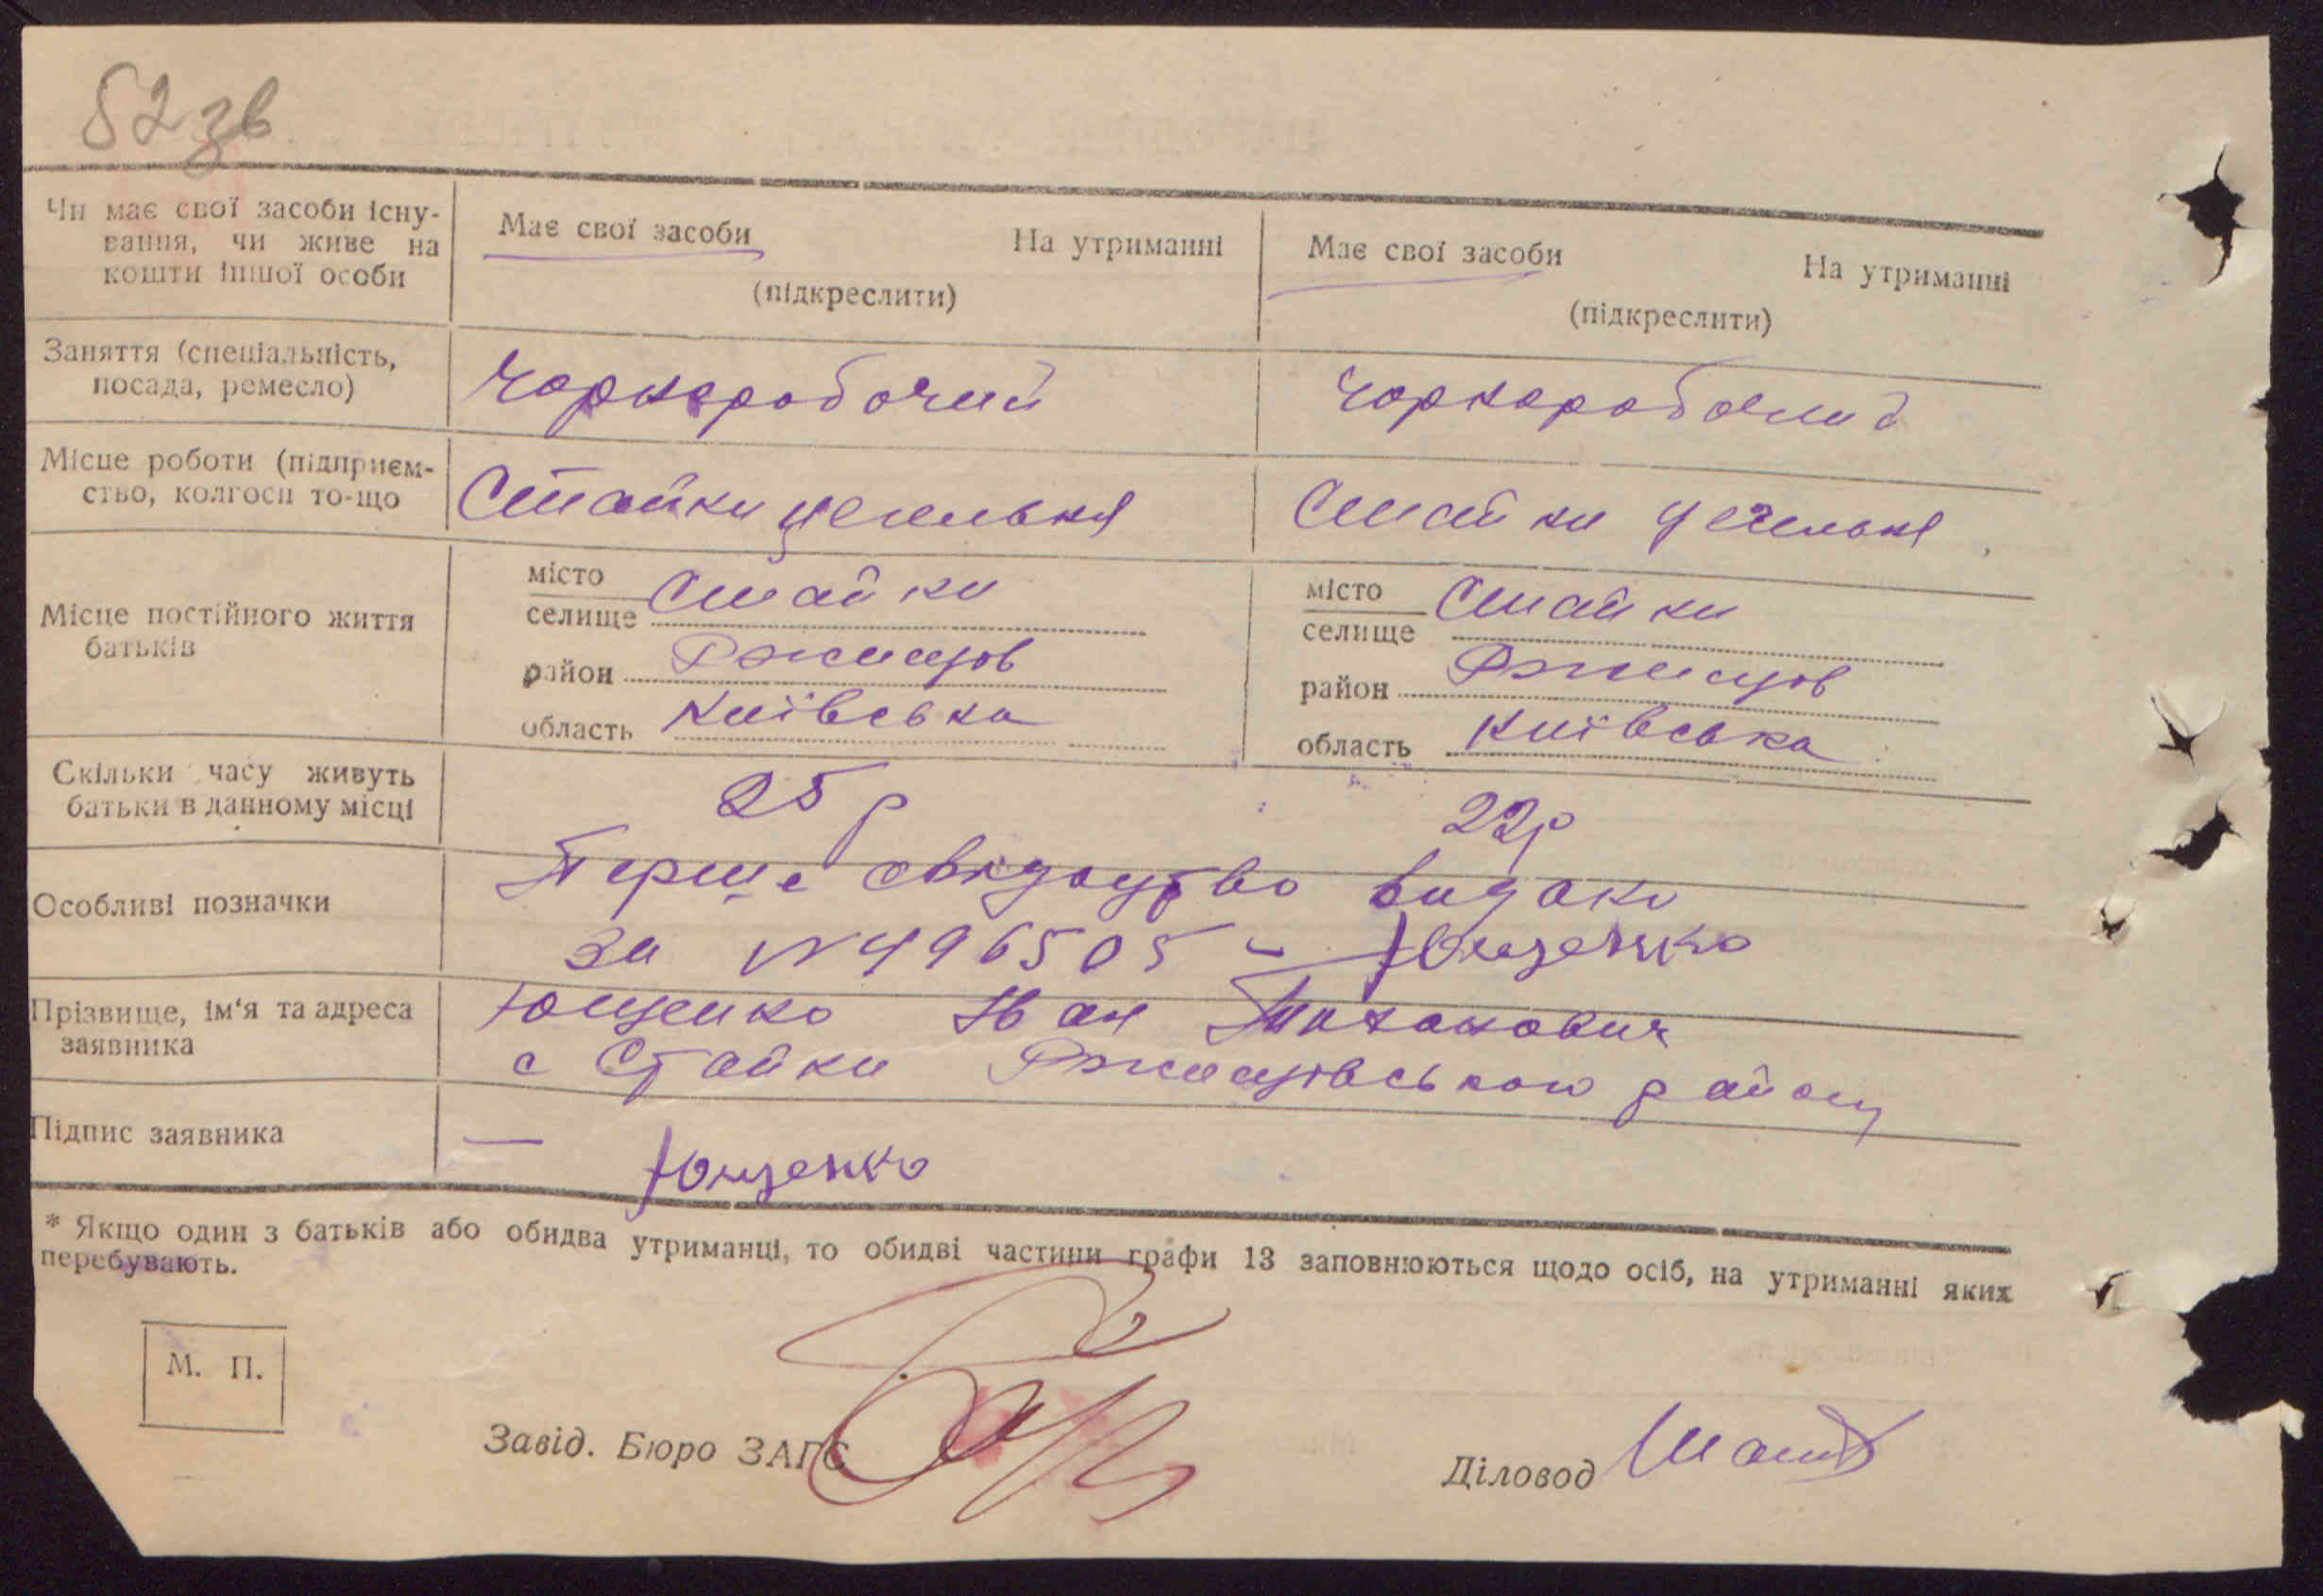 82 зв
Чи має свої засоби існу-
вання, чи живе на
кошти іншої особи
Має свої засоби На утриманні
(підкреслити)
Має свої засоби На утриманні
(підкреслити)
Заняття (спеціальність,
посада, ремесло)
Чорноробочий
Чорноробочий
Місце роботи (підприєм-
ство, колгосп то-що
Стайки цегельня
Стайки цегельня
Місце постійного життя
батьків
місто
селище Стайки
район Ржищов
область Київська
місто
селище Стайки
район Ржищов
область Київська
Скільки часу живуть
батьки в данному місці
25 р
22р
Особливі позначки
Перше свідоцтво видано
за № 496505 – Ющенко
Прізвище, ім'я та адреса
заявника
Ющенко Іван
с Стайки Ржищівського району
Підпис заявника
— Ющенко
* Якщо один з батьків або обидва утриманці, то обидві частини графи 13 заповнюються щодо осіб, на утриманні яких
перебувають.
М. П.
Завід. Бюро ЗАГС
Діловод